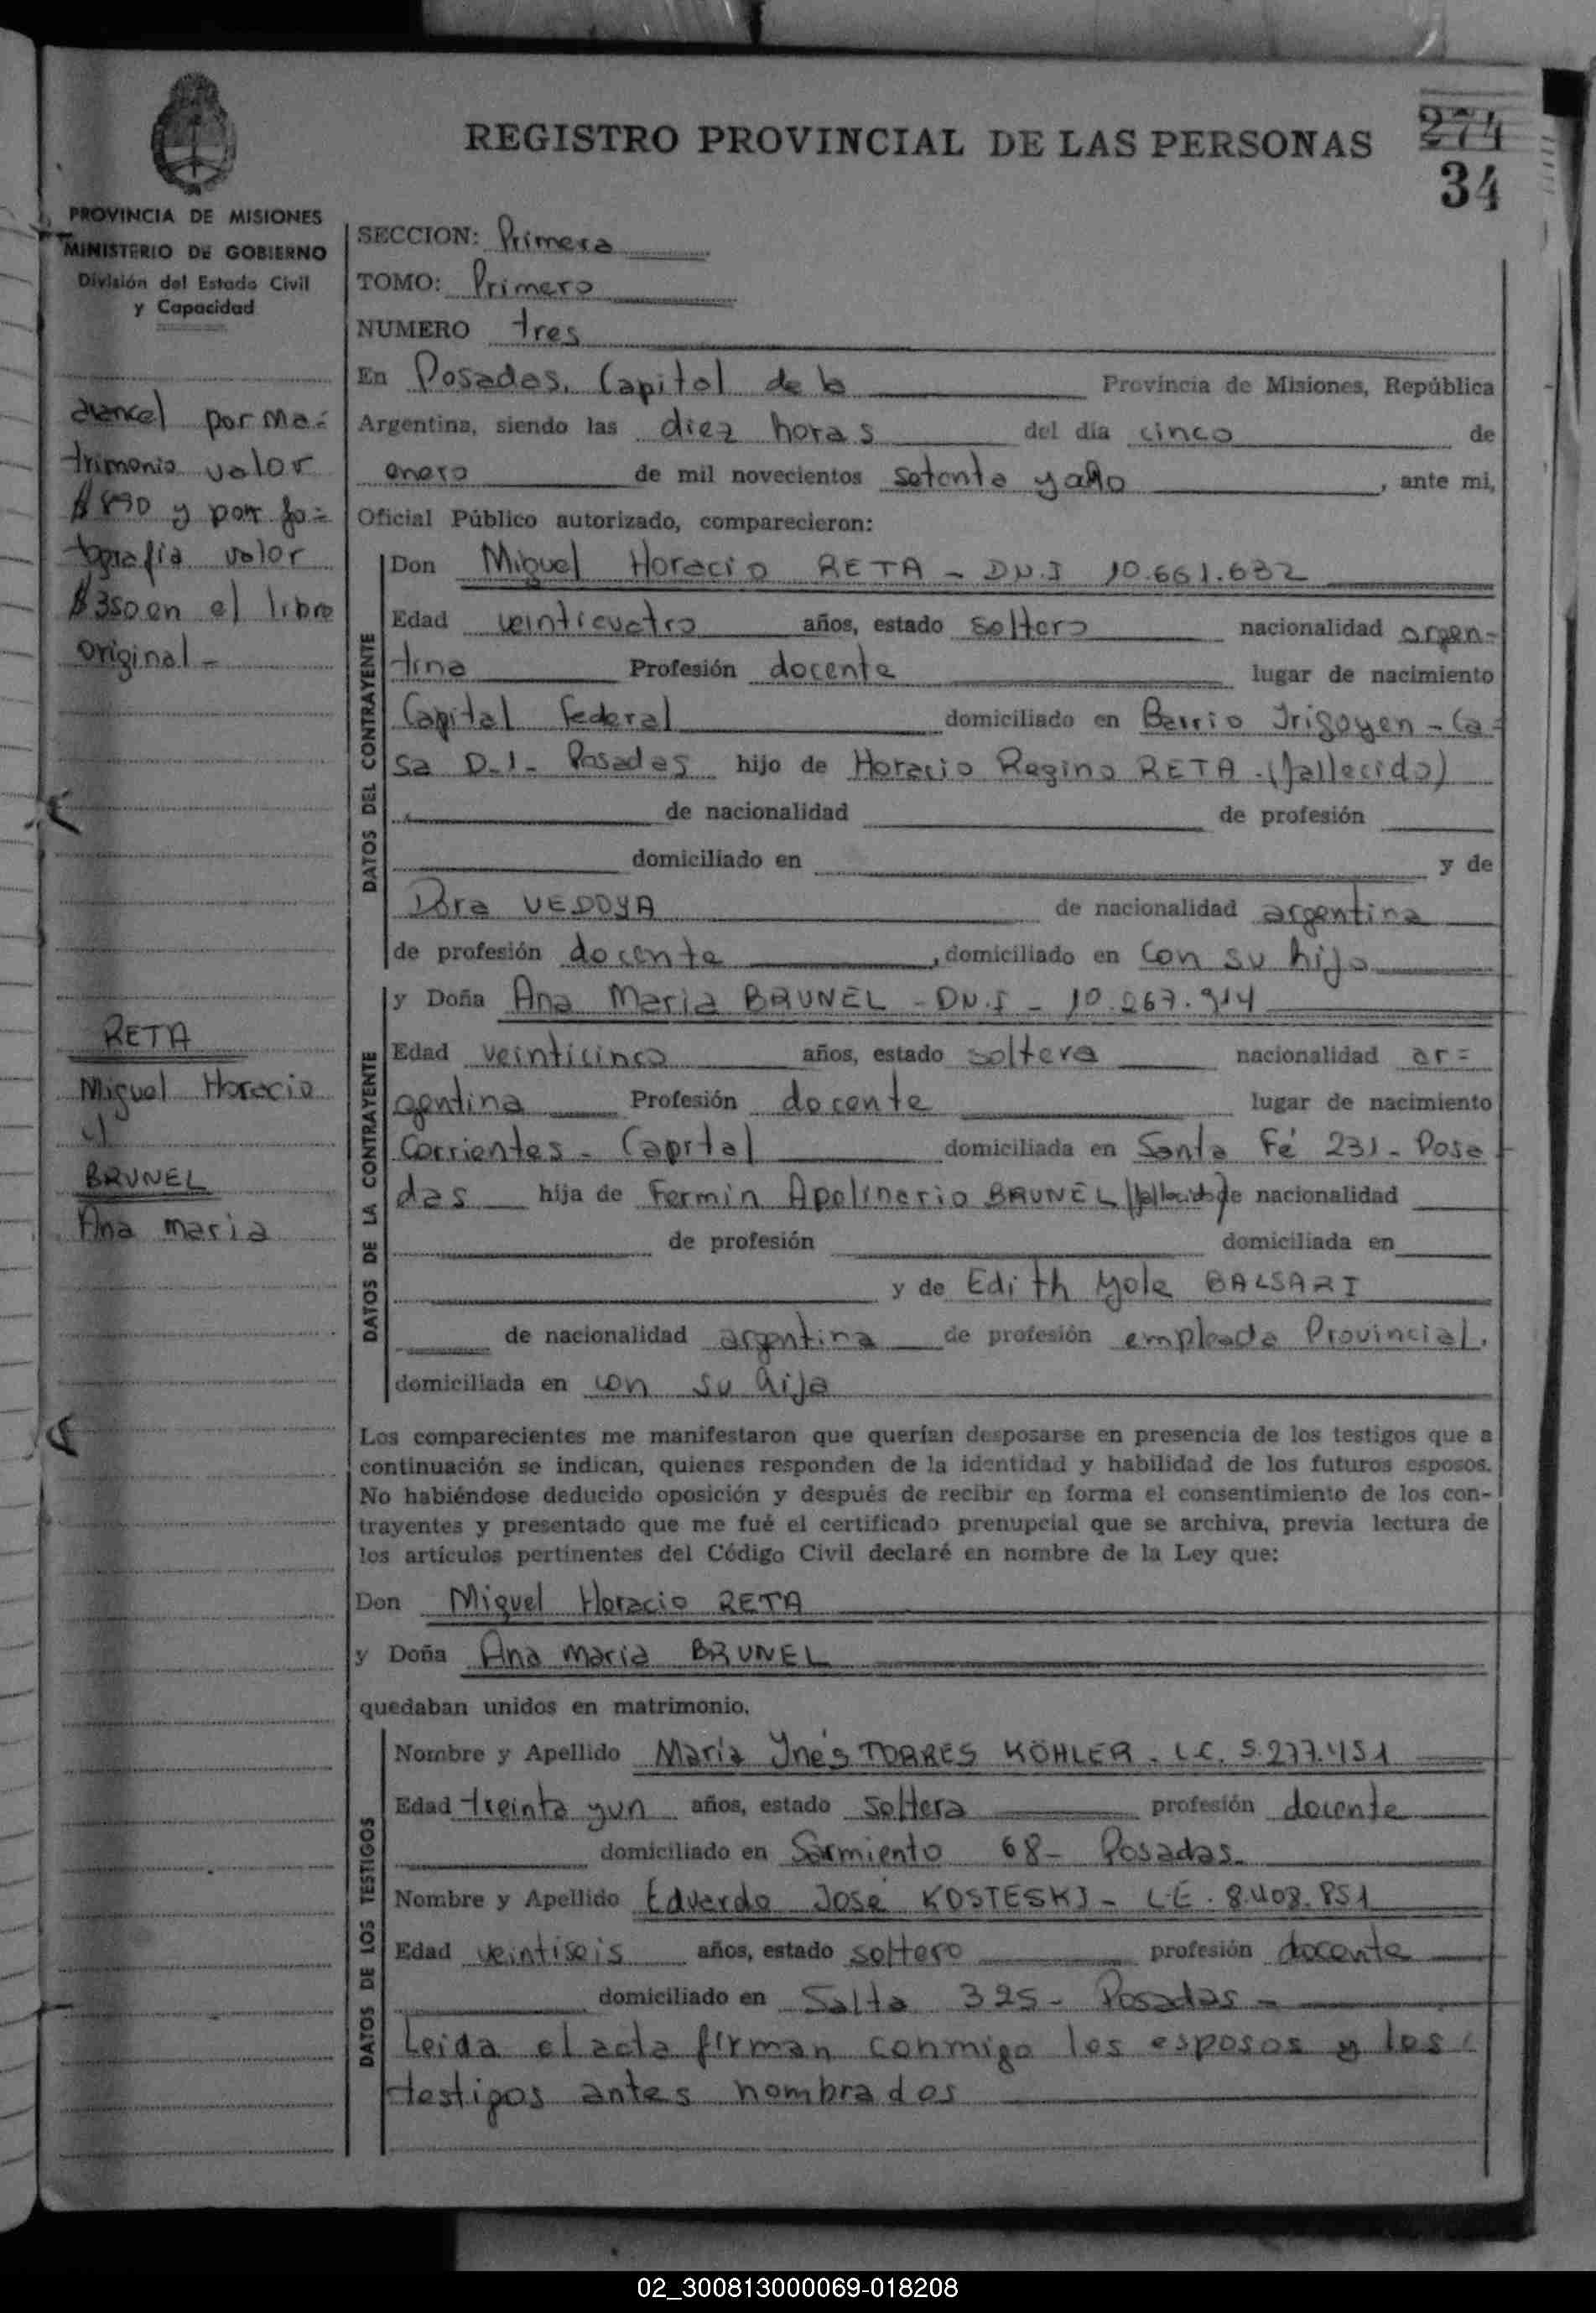 REGISTRO PROVINCIAL DE LAS PERSONAS
274
34
PROVINCIA DE MISIONES
MINISTERIO DE GOBIERNO
División del Estado Civil
y Capacidad
arancel por ma=
trimonio valor
$890 y por fo=
tografía valor
$350 en el libro
original-
RETA
Miguel Horacio
y
BRUNEL
Ana maria
SECCION: Primera
TOMO: Primero
NUMERO tres
En Posadas, Capital de la Provincia de Misiones, República
Argentina, siendo las diez horas del día cinco de
enero de mil novecientos setenta y ocho, ante mi,
Oficial Público autorizado, comparecieron:
DATOS DEL CONTRAYENTE
Don Miguel Horacio RETA - DN.I 10.661.632
Edad veinticuatro años, estado soltero nacionalidad argen-
tina Profesión docente lugar de nacimiento
Capital Federal domiciliado en Barrio Irigoyen - Ca=
sa D.1- Posadas hijo de Horacio Regino RETA.(fallecido)
de nacionalidad de profesión
domiciliado en y de
Dora VEDOYA de nacionalidad argentina
de profesión docente, domiciliado en con su hijo
DATOS DE LA CONTRAYENTE
y Doña Ana Maria BRUNEL - DN.I - 10.267.914
Edad veinticinco años, estado soltera nacionalidad ar=
gentina Profesión docente lugar de nacimiento
Corrientes - Capital domiciliada en Santa Fé 231 - Posa
das hija de Fermin Apolinario BRUNEL (fallecido) de nacionalidad
de profesión domiciliada en
y de Edith Yole BALSARI
de nacionalidad argentina de profesión empleada Provincial.
domiciliada en con su hija
Los comparecientes me manifestaron que querían desposarse en presencia de los testigos que a
continuación se indican, quienes responden de la identidad y habilidad de los futuros esposos.
No habiéndose deducido oposición y después de recibir en forma el consentimiento de los con-
trayentes y presentado que me fué el certificado prenupcial que se archiva, previa lectura de
los artículos pertinentes del Código Civil declaré en nombre de la Ley que:
Don Miguel Horacio RETA
y Doña Ana Maria BRUNEL
quedaban unidos en matrimonio.
DATOS DE LOS TESTIGOS
Nombre y Apellido María Ynés TORRES KÖHLER. L.C. 5.277.451
Edad treinta y un años, estado soltera profesión docente
domiciliado en Sarmiento 68- Posadas.
Nombre y Apellido Eduardo José KOSTESKI- L.E. 8.408.851
Edad veintiseis años, estado soltero profesión docente
domiciliado en Salta 325- Posadas-
Leida el acta firman conmigo los esposos y los
testigos antes nombrados
02_300813000069-018208